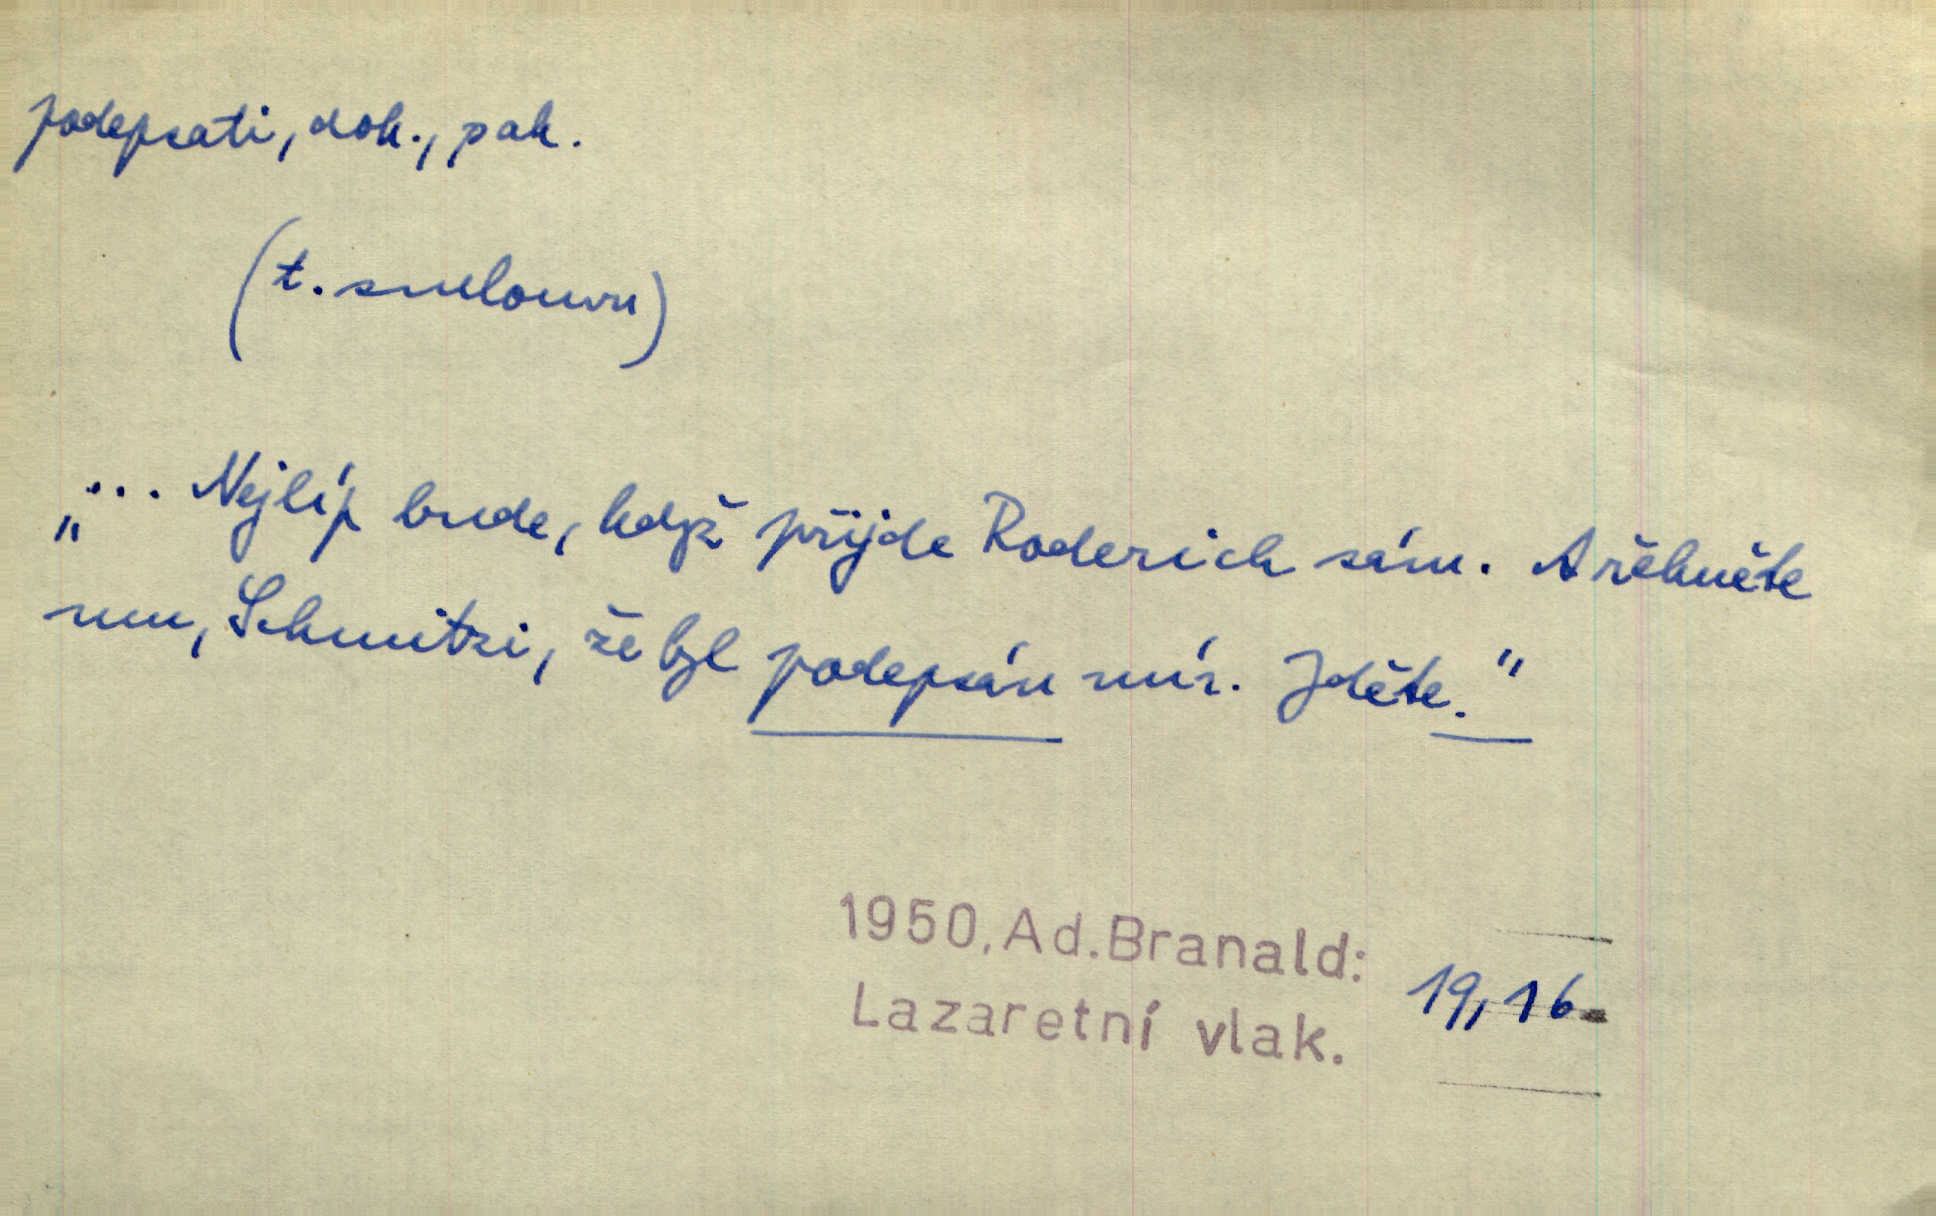 podepsati, dok., pak.
(t. smlouvu)
„... Nejlíp bude, když přijde Roderich sám. A řekněte
mu, Schmitzi, že byl podepsán mír. Jděte."
1950, Ad. Branald:
Lazaretní vlak.
19,16